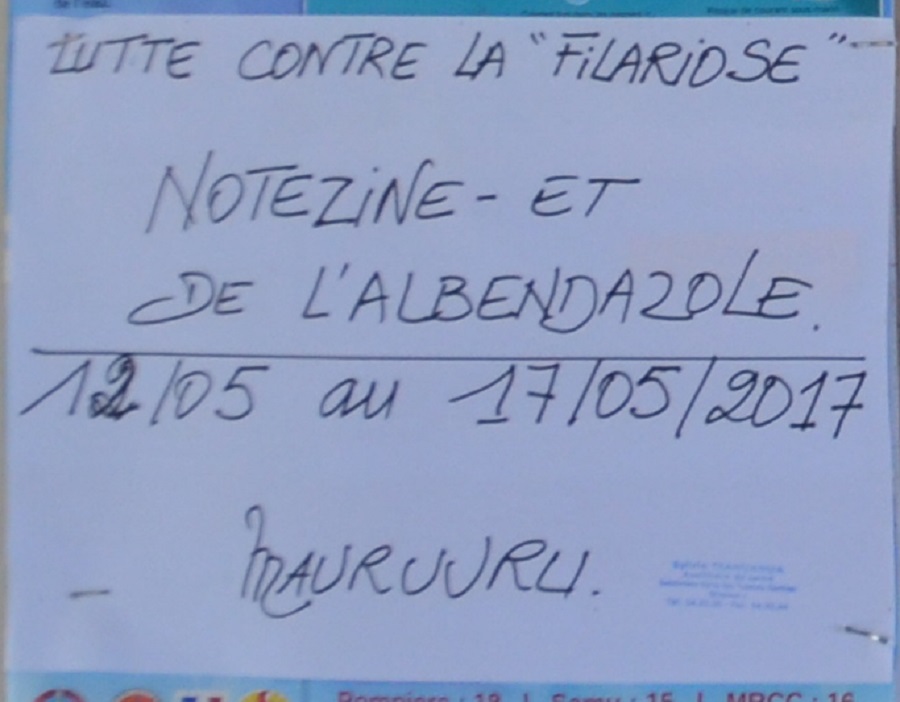 de l'eau.
LUTTE CONTRE LA "FiLARiOSE"
NOTEZiNE - ET
DE L'ALBENDAZOLE.
12/05 au 17/05/2017
MAURUURU.
Pompiers : 18 | Samu : 15 | MRCC : 16